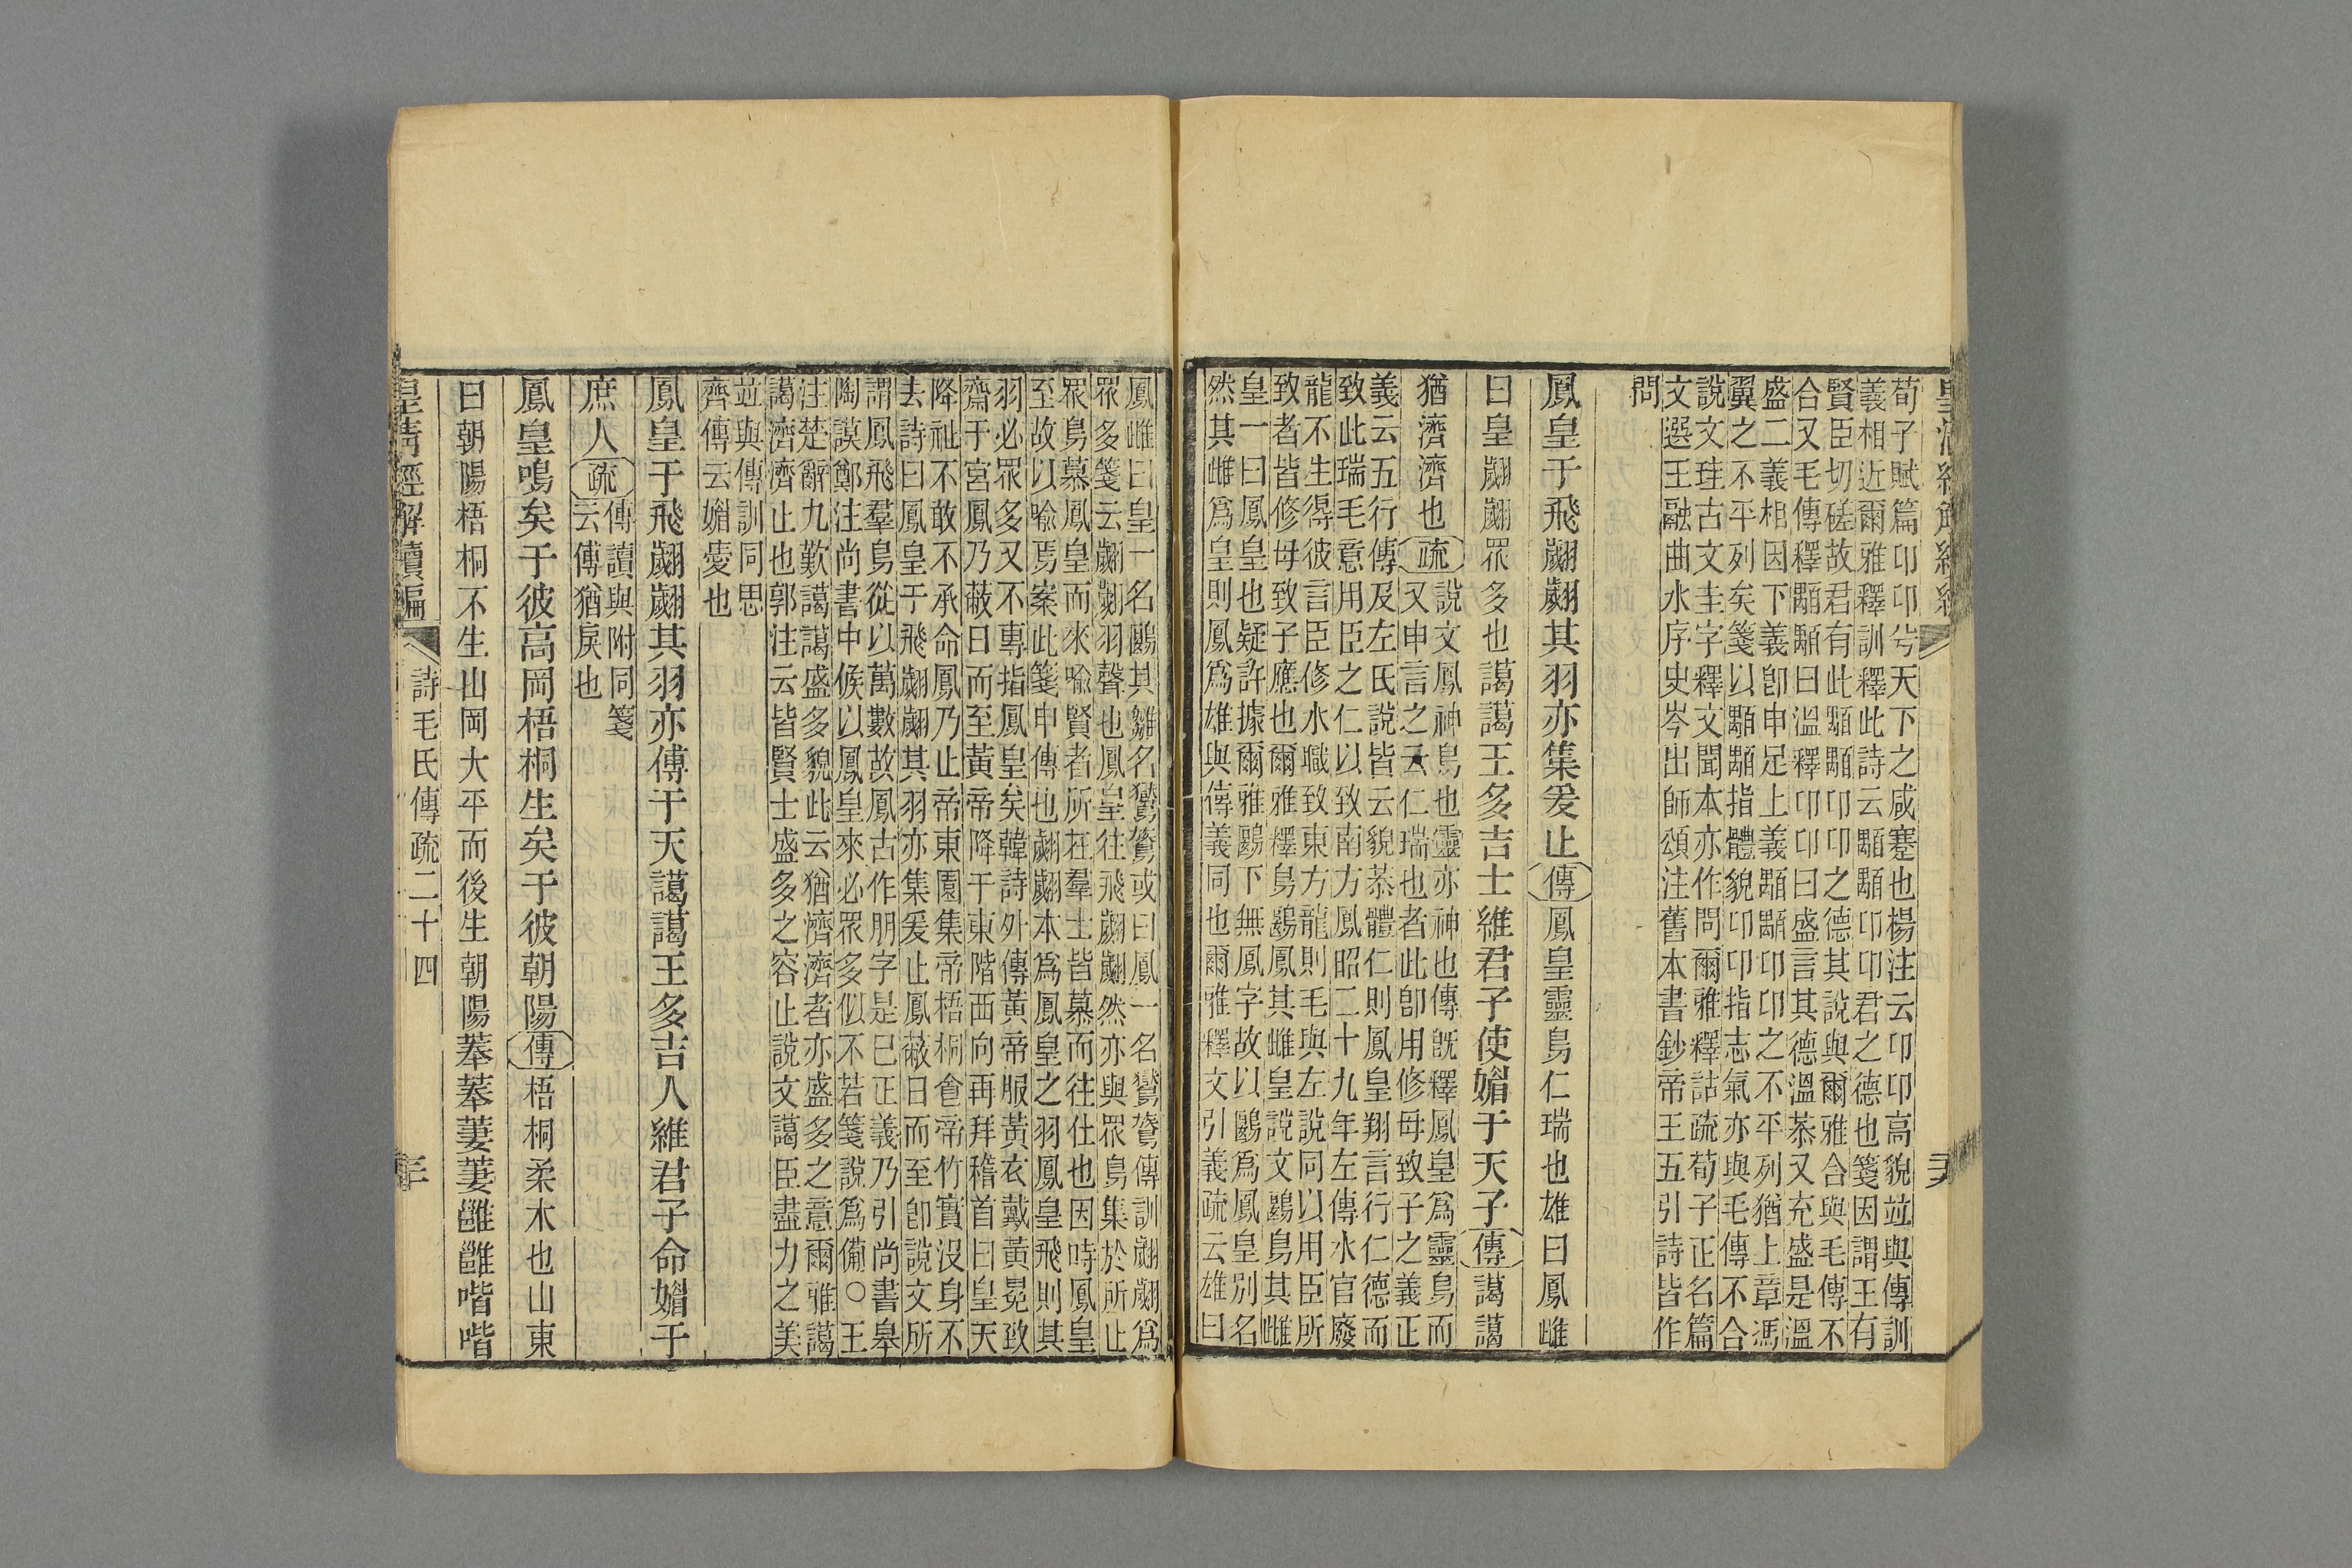 荀子賦篇卬卬兮天下之咸蹇也楊注云卬卬高貌竝與傳訓
義相近爾雅釋訓釋此詩云顒顒卬卬君之德也箋因謂王有
賢臣切磋故君有此顒顒卬卬之德其說與爾雅合與毛傳不
合又毛傳釋顒顒曰溫釋卬卬曰盛言其德溫恭又充盛是溫
盛二義相因下義卽申足上義顒顒卬卬之不平列猶上章馮
翼之不平列矣箋以顒顒指體貌卬卬指志氣亦與毛傳不合
說文珪古文圭字釋文聞本亦作問爾雅釋詁疏荀子正名篇
文選王融曲水序史岑出師頌注舊本書鈔帝王五引詩皆作
問
鳳皇于飛翽翽其羽亦集爰止傳鳳皇靈鳥仁瑞也雄曰鳳雌
曰皇翽翽眾多也藹藹王多吉士維君子使媚于天子傳藹藹
猶濟濟也疏
說文鳳神鳥也靈亦神也傳旣釋鳳皇爲靈鳥而
又申言之云仁瑞也者此卽用修母致子之義正
義云五行傳及左氏說皆云貌恭體仁則鳳皇翔言行仁德而
致此瑞毛意用臣之仁以致南方鳳昭二十九年左傳水官廢
龍不生得彼言臣修水職致東方龍則毛與左說同以用臣所
致者皆修母致子應也爾雅釋鳥鶠鳳其雌皇說文鶠鳥其雌
皇一曰鳳皇也疑許據爾雅鶠下無鳳字故以鶠爲鳳皇別名
然其雌爲皇則鳳爲雄與傳義同也爾雅釋文引義疏云雄曰
鳳雌曰皇一名鶠其雛名鸑鷟或曰鳳一名鸑鷟傳訓翽翽爲
眾多箋云翽翽羽聲也鳳皇往飛翽翽然亦與眾鳥集於所止
眾鳥慕鳳皇而來喻賢者所在羣士皆慕而往仕也因時鳳皇
至故以喻焉案此箋申傳也翽翽本爲鳳皇之羽鳳皇飛則其
羽必眾多又不專指鳳皇矣韓詩外傳黃帝服黃衣戴黃冕致
齋于宮鳳乃蔽日而至黃帝降于東階西向再拜稽首曰皇天
降祉不敢不承命鳳乃止帝東園集帝梧桐食帝竹實沒身不
去詩曰鳳皇于飛翽翽其羽亦集爰止鳳蔽日而至卽說文所
謂鳳飛羣鳥從以萬數故鳳古作朋字是已正義乃引尚書皋
陶謨鄭注尚書中候以鳳皇來必眾多似不若箋說爲備○王
注楚辭九歎藹藹盛多貌此云猶濟濟者亦盛多之意爾雅藹
藹濟濟止也郭注云皆賢士盛多之容止說文藹臣盡力之美
竝與傳訓同思
齊傳云媚愛也
鳳皇于飛翽翽其羽亦傅于天藹藹王多吉人維君子命媚于
庶人疏
傅讀與附同箋
云傅猶戾也
鳳皇鳴矣于彼高岡梧桐生矣于彼朝陽傳梧桐柔木也山東
曰朝陽梧桐不生山岡大平而後生朝陽菶菶萋萋雝雝喈喈
皇清經解續編
詩毛氏傳疏二十四